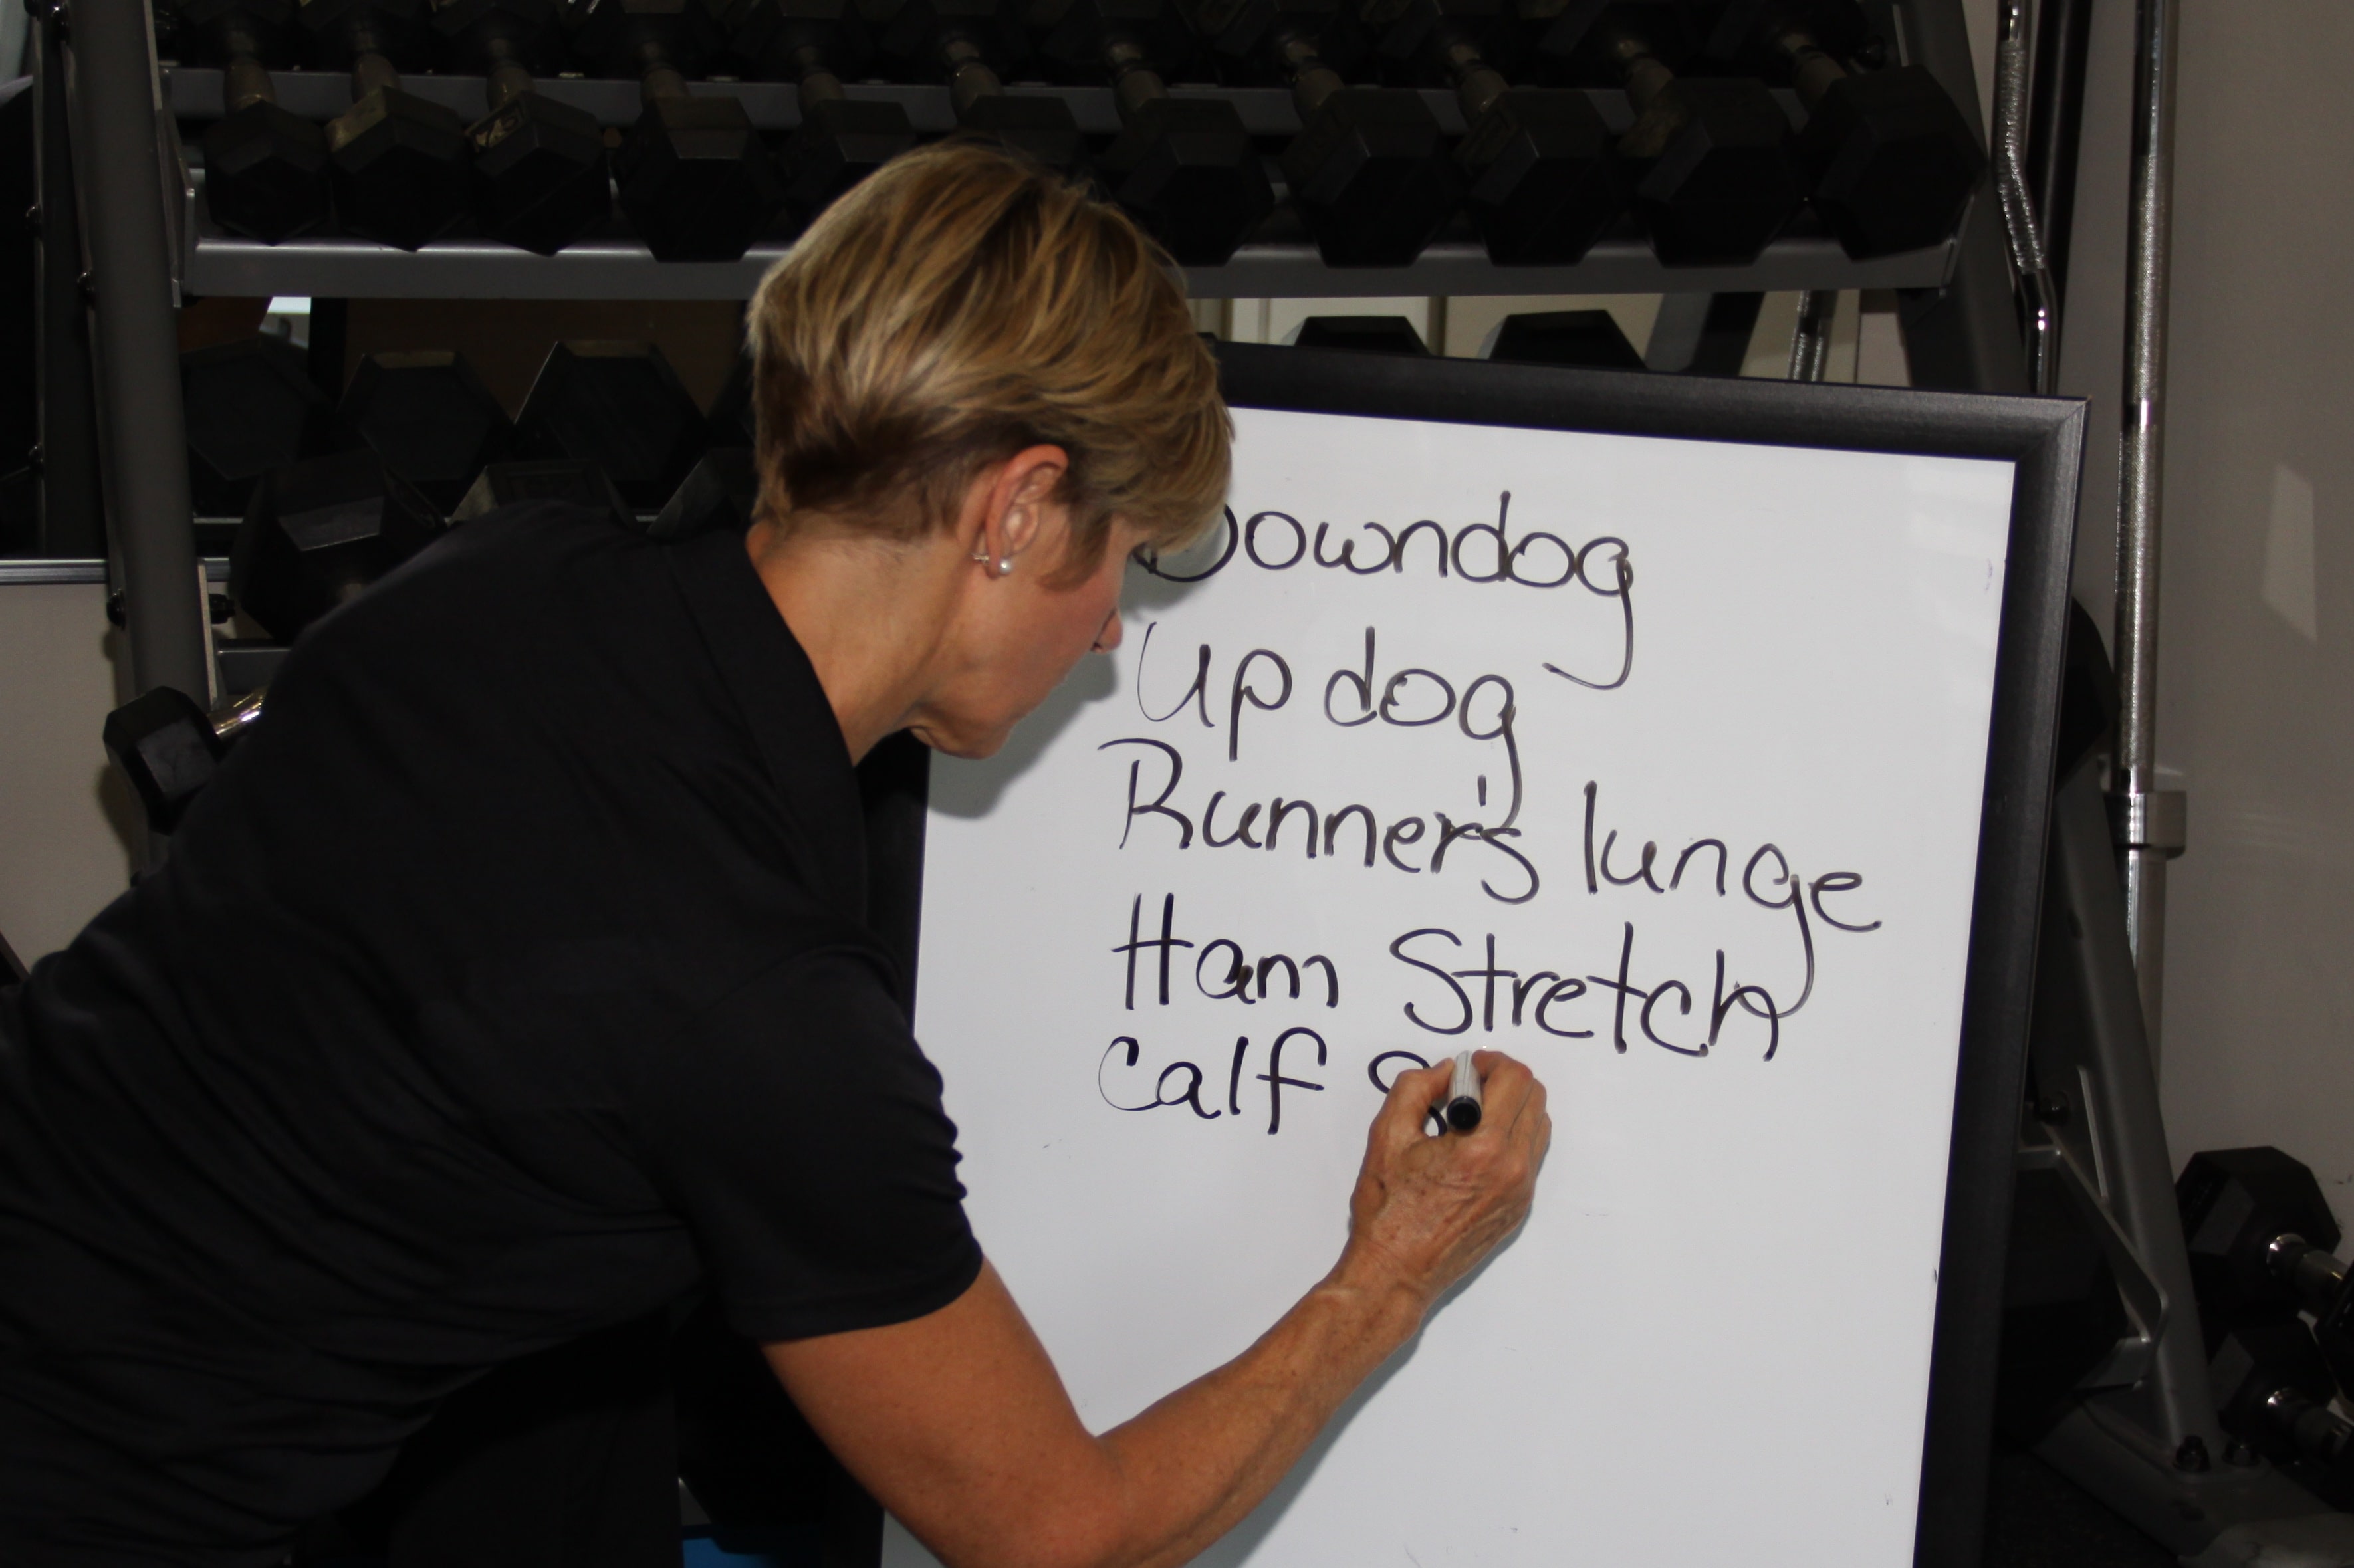 Downdog
Up dog
Runner's lunge
Ham Stretch
Calf S